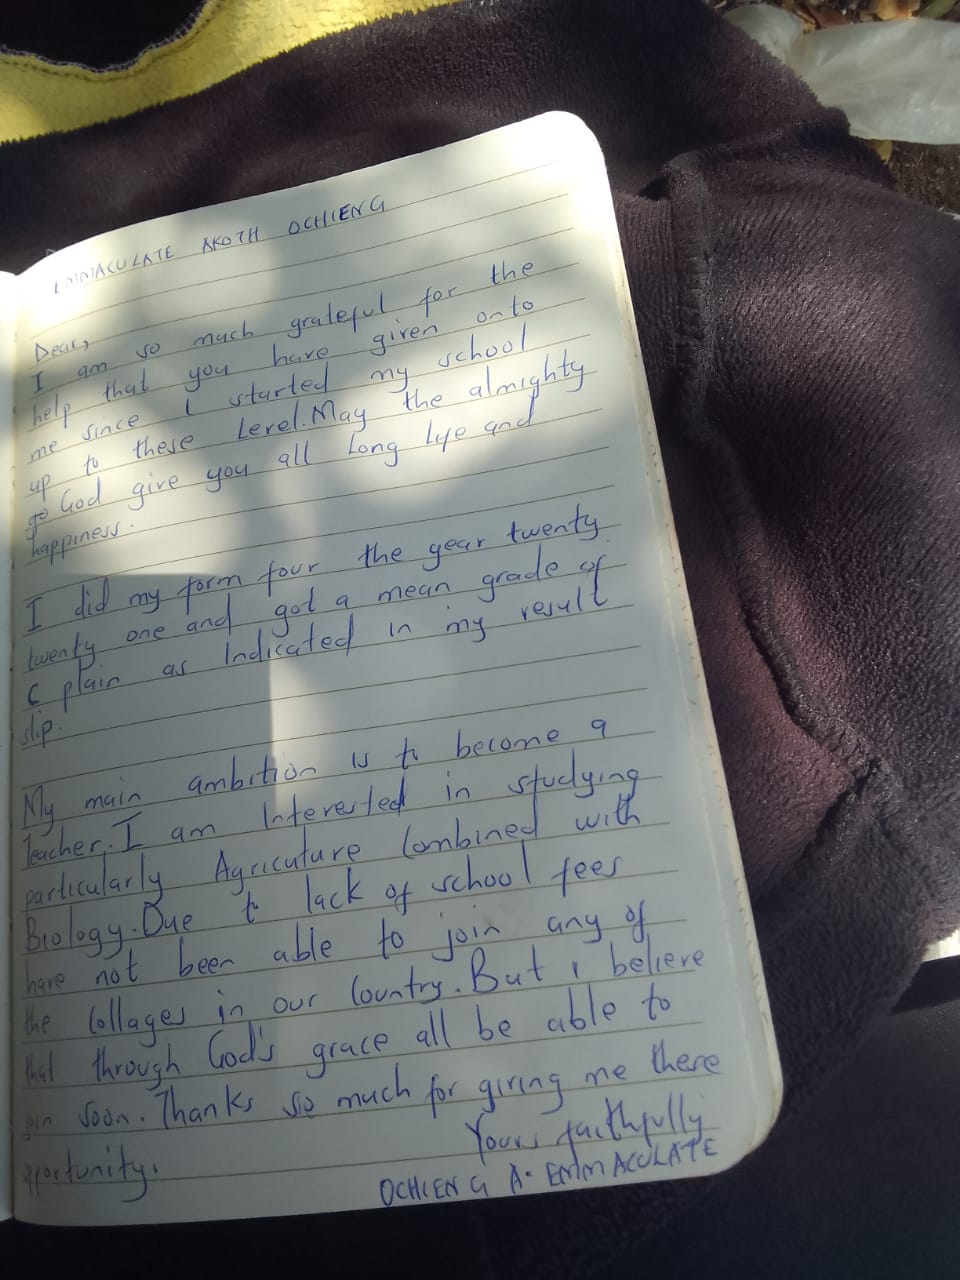 EMMACULATE AKOTH OCHIENG
Dear,
I am so much grateful for the
help that you have given onto
me since i started my school
up to these level. May the almighty
go God give you all long lye and
happiness.
I did my form four the year twenty
twenty one and got a mean grade of
C plain as Indicated in my result
slip.
My main ambition is to become a
Teacher. I am Interested in studying
particularly Agricuture Combined with
Biology. Due to lack of school fees
have not been able to join any of
the Collages in our Country. But i believe
that through God's grace all be able to
join soon. Thanks so much for giving me there
opportunity.
Yours faithfully
OCHIENG A. EMMACULATE